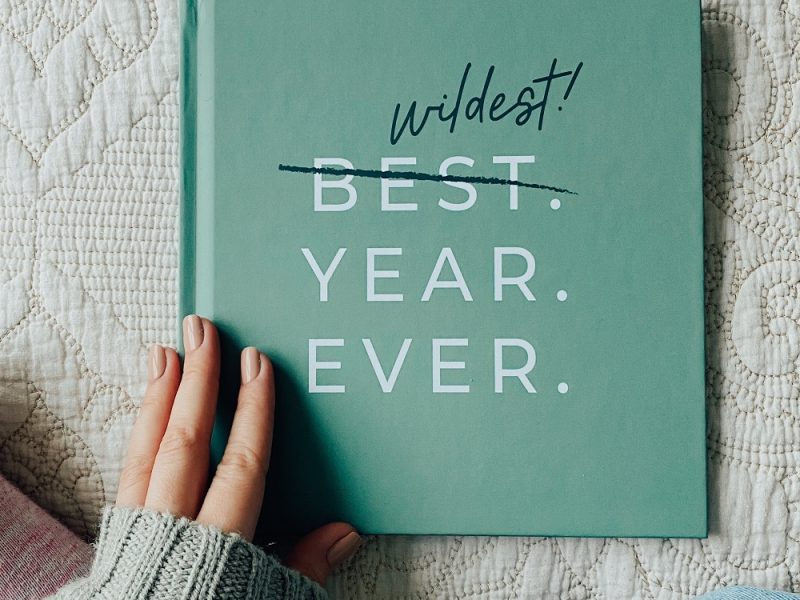 wildest!
BEST.
YEAR.
EVER.